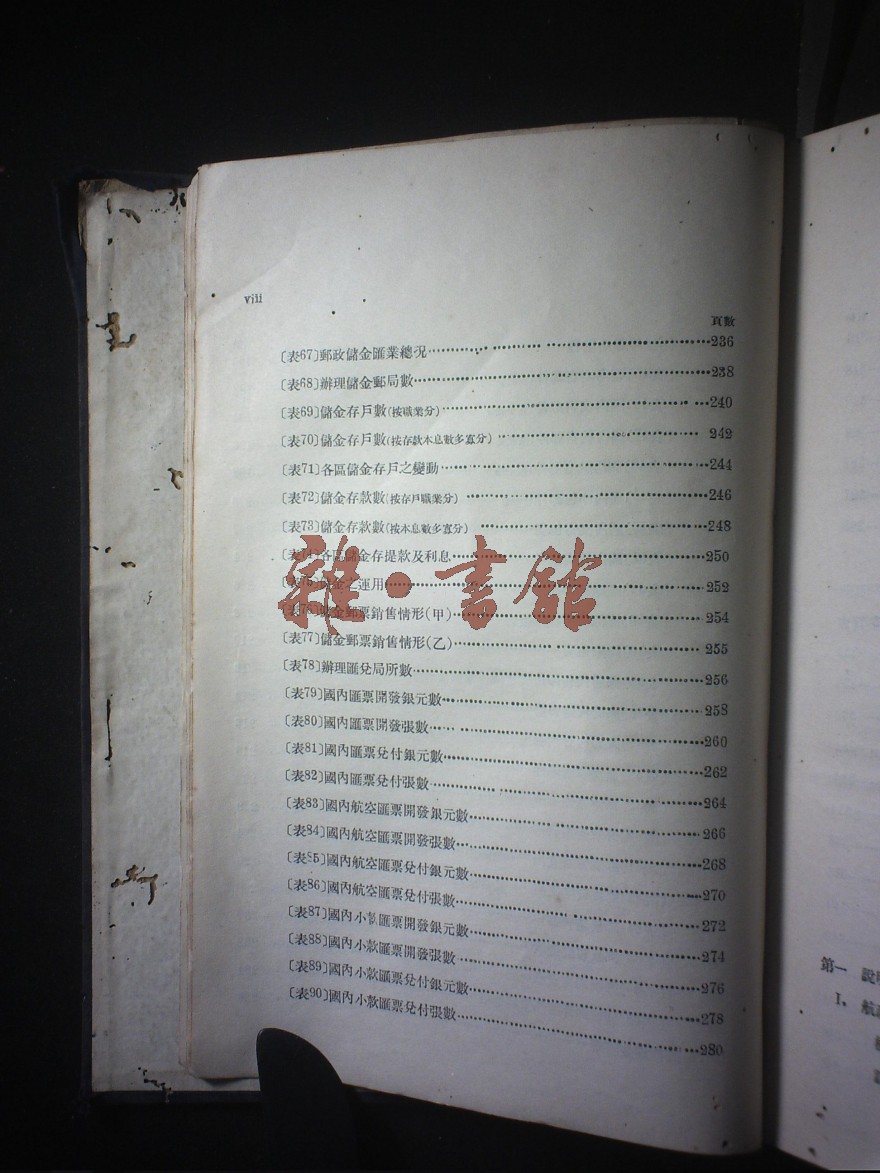 viii
頁數
〔表67〕郵政儲金匯業總況……………………236
〔表68〕辦理儲金郵局數……………………238
〔表69〕儲金存戶數(按職業分)……………………240
〔表70〕儲金存戶數(按存款本息數多寡分)……………………242
〔表71〕各區儲金存戶之變動……………………244
〔表72〕儲金存款數(按存戶職業分)……………………246
〔表73〕儲金存款數(按本息數多寡分)……………………248
〔表74〕各區儲金存提款及利息……………………250
〔表75〕儲金之運用……………………252
〔表76〕儲金郵票銷售情形(甲)……………………254
〔表77〕儲金郵票銷售情形(乙)……………………255
〔表78〕辦理匯兌局所數……………………256
〔表79〕國內匯票開發銀元數……………………258
〔表80〕國內匯票開發張數……………………260
〔表81〕國內匯票兌付銀元數……………………262
〔表82〕國內匯票兌付張數……………………264
〔表83〕國內航空匯票開發銀元數……………………266
〔表84〕國內航空匯票開發張數……………………268
〔表85〕國內航空匯票兌付銀元數……………………270
〔表86〕國內航空匯票兌付張數……………………272
〔表87〕國內小款匯票開發銀元數……………………274
〔表88〕國內小款匯票開發張數……………………276
〔表89〕國內小款匯票兌付銀元數……………………278
〔表90〕國內小款匯票兌付張數……………………280
雜·書館
第一 說
I、航